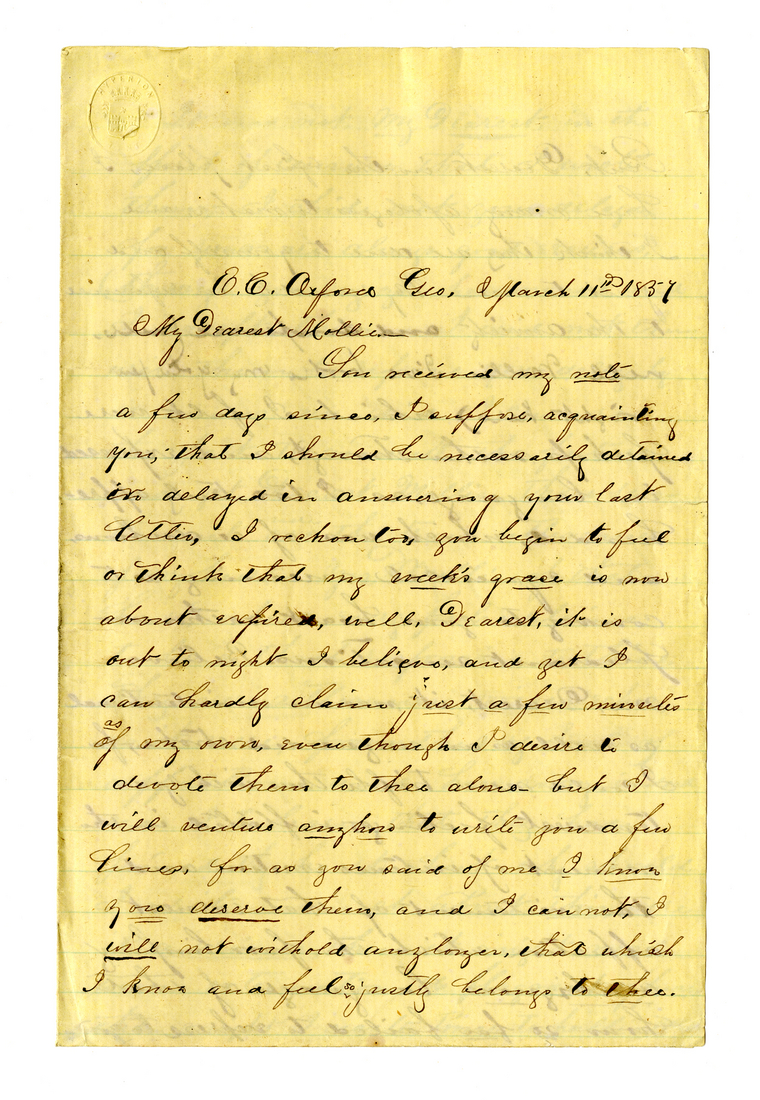 E. C. Oxford Geo, March 11th 1857
My Dearest Mollie—
You received my note
a few days since, I suppose, acquainting
you, that I should be necessarily detained
or delayed in answering your last
letter, I reckon too, you begin to feel
or think that my week's grace is now
about expired, well, Dearest, it is
out to night I believe, and yet I
can hardly claim just a few minutes
as
of my own, even though I desire to
devote them to thee alone— but I
will venture anyhow to write you a few
lines, for as you said of me I know
you deserve them, and I can not, I
will not withold anylonger, that which
I know and feel so justly belongs to thee.